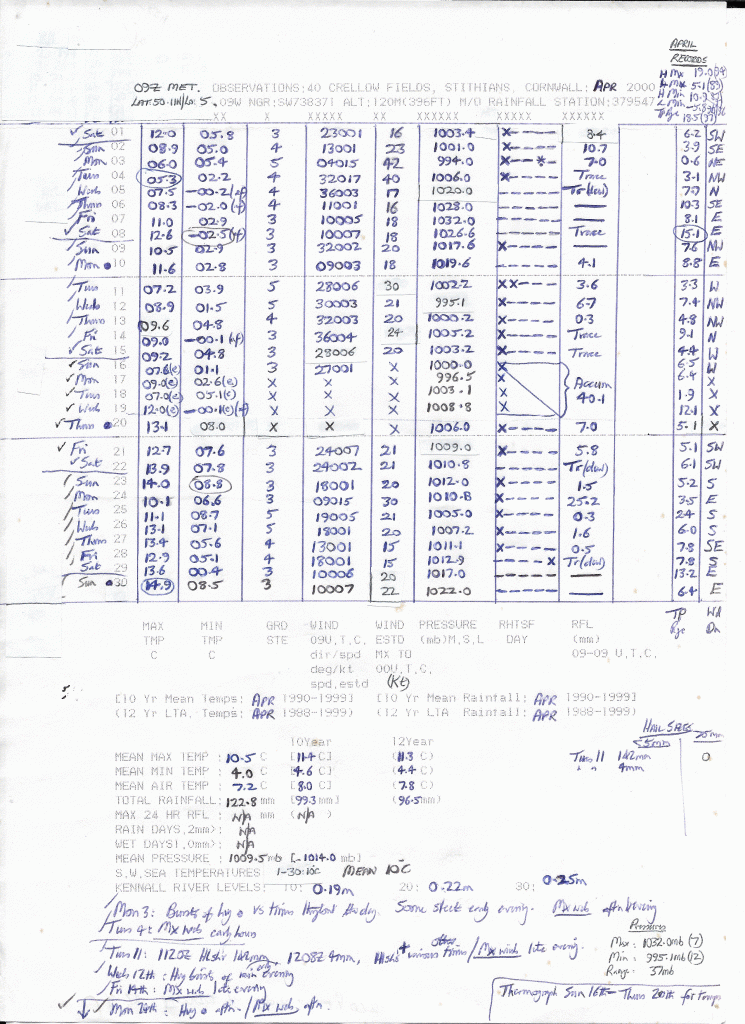 APRIL
RECORDS
H Mx 19.0(84)
L Mx 5.1(83)
H Min 10.9(87)
09Z MET. OBSERVATIONS:40 CRELLOW FIELDS, STITHIANS, CORNWALL: APR 2000
LAT:50.11N/Lo:5.09W NGR:SW738371 ALT:120M(396FT) M/O RAINFALL STATION:379547
XX XX X XXXXX XX XXXXXX XXXXX XXXXXX
✓ Sat 01 12.0 05.8 3 23001 16 1003.4 X---- 8.4 6.2 SW
Sun 02 08.9 05.0 4 13001 23 1001.0 X---- 10.7 3.9 SE
Mon 03 06.0 05.4 5 04015 42 994.0 X--*-- 7.0 0.6 NE
Tues 04 05.3 02.2 4 32017 40 1006.0 X---- Trace 3.1 NW
Weds 05 07.5 -00.2(af) 4 36003 17 1020.0 ----- Tr(dew) 7.7 N
Thurs 06 08.3 -02.0(f) 4 11001 16 1028.0 ----- — 10.3 SE
Fri 07 11.0 02.9 3 10005 18 1032.0 ----- — 8.1 E
✓ Sat 08 12.6 -02.5(f) 3 10007 18 1026.6 ----- Trace 15.1 E
Sun 09 10.5 02.9 3 32002 20 1017.6 X---- — 7.6 NW
Mon 10 11.6 02.8 3 09003 18 1019.6 ----- 4.1 8.8 E
Tues 11 07.2 03.9 5 28006 30 1002.2 XX---- 3.6 3.3 W
Weds 12 08.9 01.5 5 30003 21 995.1 X---- 6.7 7.4 NW
Thurs 13 09.6 04.8 4 32003 20 1000.2 X---- 0.3 4.8 NW
Fri 14 09.0 -00.1(af) 3 36004 24 1005.2 X---- Trace 9.1 N
✓ Sat 15 09.2 04.8 3 28006 20 1003.2 X---- Trace 4.4 W
✓ Sun 16 07.6(e) 01.1 3 27001 X 1000.0 X 6.5 W
✓ Mon 17 09.0(e) 02.6(e) X X X 996.5 X Accum 6.4 X
✓ Tues 18 07.0(e) 05.1(e) X X X 1003.1 X 40.1 1.9 X
✓ Weds 19 12.0(e) -00.1(e)(f) X X X 1008.8 X 12.1 X
✓ Thurs 20 13.1 08.0 X X X 1006.0 X---- 7.0 5.1 X
✓ Fri 21 12.7 07.6 3 24007 21 1009.0 X---- 5.8 5.1 SW
✓ Sat 22 13.9 07.8 3 24002 21 1010.8 ----- Tr(dew) 6.1 SW
Sun 23 14.0 08.8 3 18001 20 1012.0 X---- 1.5 5.2 S
Mon 24 10.1 06.6 3 09015 30 1010.8 X---- 25.2 3.5 E
Tues 25 11.1 08.7 5 19005 21 1005.0 X---- 0.3 2.4 S
Weds 26 13.1 07.1 5 18001 20 1007.2 X---- 1.6 6.0 S
Thurs 27 13.4 05.6 4 13001 15 1011.1 X---- 0.5 7.8 SE
Fri 28 12.9 05.1 4 18001 15 1012.9 ----X Tr(dew) 7.8 S
Sat 29 13.6 00.4 3 10006 20 1017.0 ----- — 13.2 E
Sun 30 14.9 08.5 3 10007 22 1022.0 ----- — 6.4 E
MAX MIN GRD WIND WIND PRESSURE RHTSF RFL TP Wd
TMP TMP STE 09U,T,C, ESTD (mb)M,S,L DAY (mm) Rge Dn
C C dir/spd MX TO 09-09 U,T,C,
deg/kt 00U,T,C,
spd,estd (Kt)
[10 Yr Mean Temps: APR 1990-1999] [10 Yr Mean Rainfall: APR 1990-1999]
(12 Yr LTA, Temps: APR 1988-1999) (12 Yr LTA Rainfall: APR 1988-1999)
HAIL SIZES
<5mm >5mm
10Year 12Year
Tues 11 1 4mm 0
MEAN MAX TEMP : 10.5 C [11.4 C] (11.3 C)
MEAN MIN TEMP : 4.0 C [4.6 C] (4.4 C)
MEAN AIR TEMP : 7.2 C [8.0 C] (7.8 C)
TOTAL RAINFALL: 122.8 mm [99.3 mm] (96.5mm)
MAX 24 HR RFL : N/A mm (N/A )
RAIN DAYS,2mm): N/A
WET DAYS1,0mm): N/A
MEAN PRESSURE : 1009.5mb [-1014.0 mb]
S,W,SEA TEMPERATURES 1-30:10C MEAN 10°C
KENNALL RIVER LEVELS: 10: 0.19m 20: 0.22m 30: 0.25m
Mon 3: Bursts of hvy vs times throughout the day. Some sleet early evening. Mx wds aftn/evening
Tues 4: Mx wds early hours
Tues 11: 1120Z 1208Z 4mm, various times / Mx wnds late evening.
Weds 12th: Hvy bursts of rain early evening
Fri 14th: Mx wds late evening
Mon 24th: Hvy aftn. / Mx wds aftn.
Pressures
Max: 1032.0mb (7)
Min: 995.1mb (12)
Range: 37mb
Thermograph Sun 16th - Thurs 20th for temps